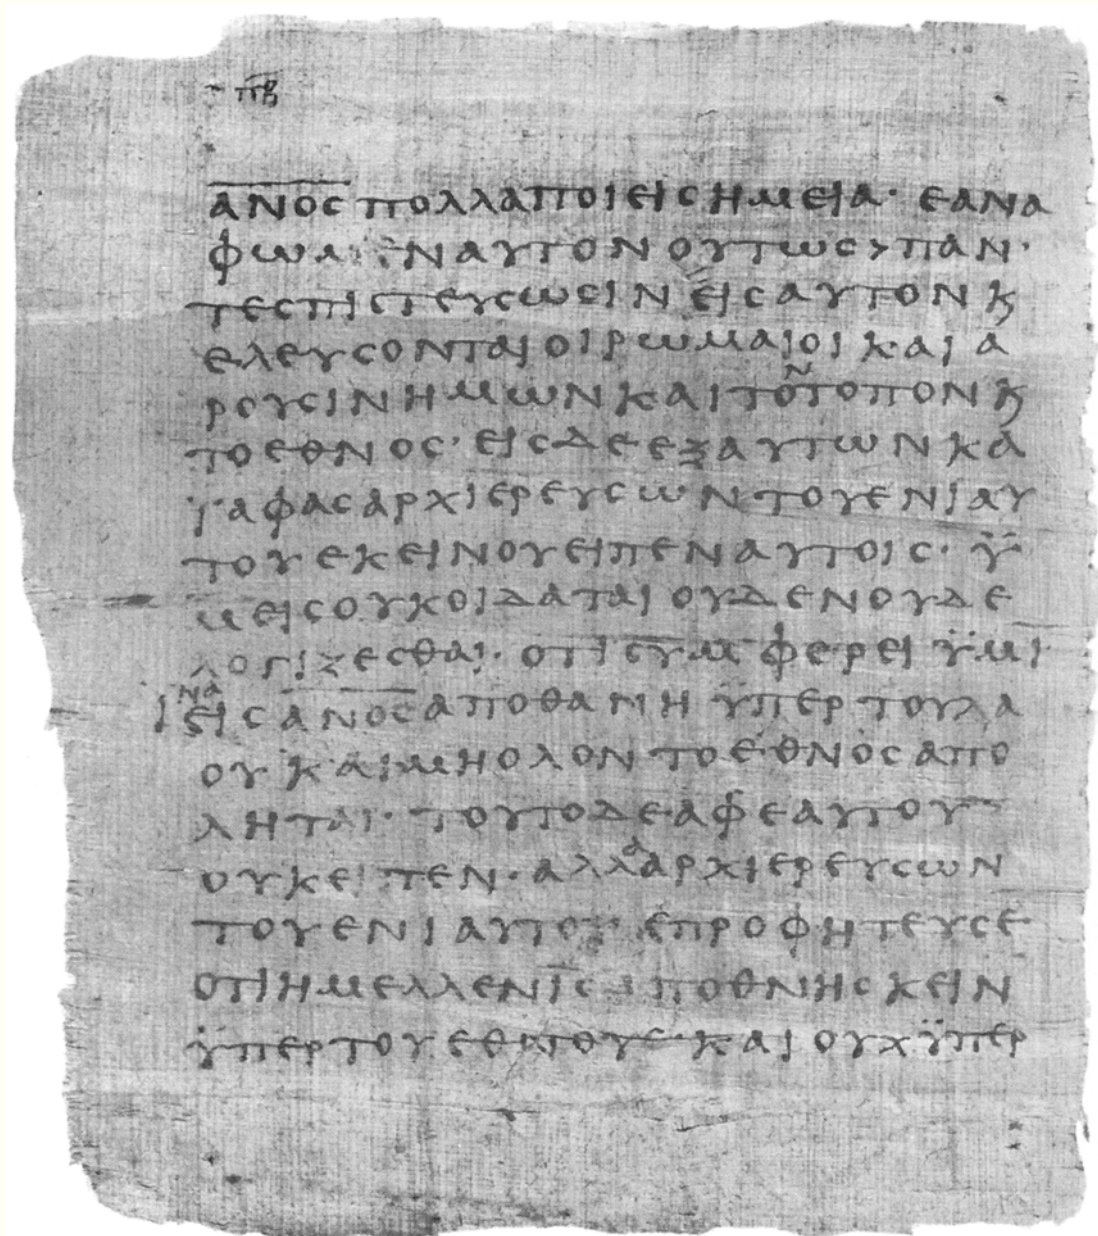 π̅β̅
Α̅Ν̅Ο̅Σ̅ ΠΟΛΛΑ ΠΟΙΕΙ ϹΗΜΕΙΑ· ΕΑΝ Α
ΦΩΜΕΝ ΑΥΤΟΝ ΟΥΤΩϹ > ΠΑΝ·
ΤΕϹ ΠΙϹΤΕΥϹΩϹΙΝ ΕΙϹ ΑΥΤΟΝ Κ
ΕΛΕΥϹΟΝΤΑΙ ΟΙ ΡΩΜΑΙΟΙ ΚΑΙ Α
ΡΟΥϹΙΝ ΗΜΩΝ ΚΑΙ ΤΟΝ ΤΟΠΟΝ Κ
ΤΟ ΕΘΝΟϹ· ΕΙϹ ΔΕ ΕΞ ΑΥΤΩΝ ΚΑ
ΙΑΦΑϹ ΑΡΧΙΕΡΕΥϹ ΩΝ ΤΟΥ ΕΝΙΑΥ
ΤΟΥ ΕΚΕΙΝΟΥ ΕΙΠΕΝ ΑΥΤΟΙϹ· Ϋ
ΜΕΙϹ ΟΥΚ ΟΙΔΑΤΑΙ ΟΥΔΕΝ ΟΥΔΕ
ΛΟΓΙΖΕϹΘΑΙ· ΟΤΙ ϹΥΜΦΕΡΕΙ ΫΜΙ
ΙΝΑ ΕΙϹ Α̅Ν̅Ο̅Ϲ̅ ΑΠΟΘΑΝΗ ΫΠΕΡ ΤΟΥ ΛΑ
ΟΥ ΚΑΙ ΜΗ ΟΛΟΝ ΤΟ ΕΘΝΟϹ ΑΠΟ
ΛΗΤΑΙ· ΤΟΥΤΟ ΔΕ ΑΦ ΕΑΥΤΟΥ
ΟΥΚ ΕΙΠΕΝ· ΑΛΛΑ ΑΡΧΙΕΡΕΥϹ ΩΝ
ΤΟΥ ΕΝΙΑΥΤΟΥ ΕΠΡΟΦΗΤΕΥϹΕ
ΟΤΙ ΗΜΕΛΛΕΝ Ι̅Ϲ̅ ΑΠΟΘΝΗϹΚΕΙΝ
ΫΠΕΡ ΤΟΥ ΕΘΝΟΥϹ· ΚΑΙ ΟΥΧ ΫΠΕΡ